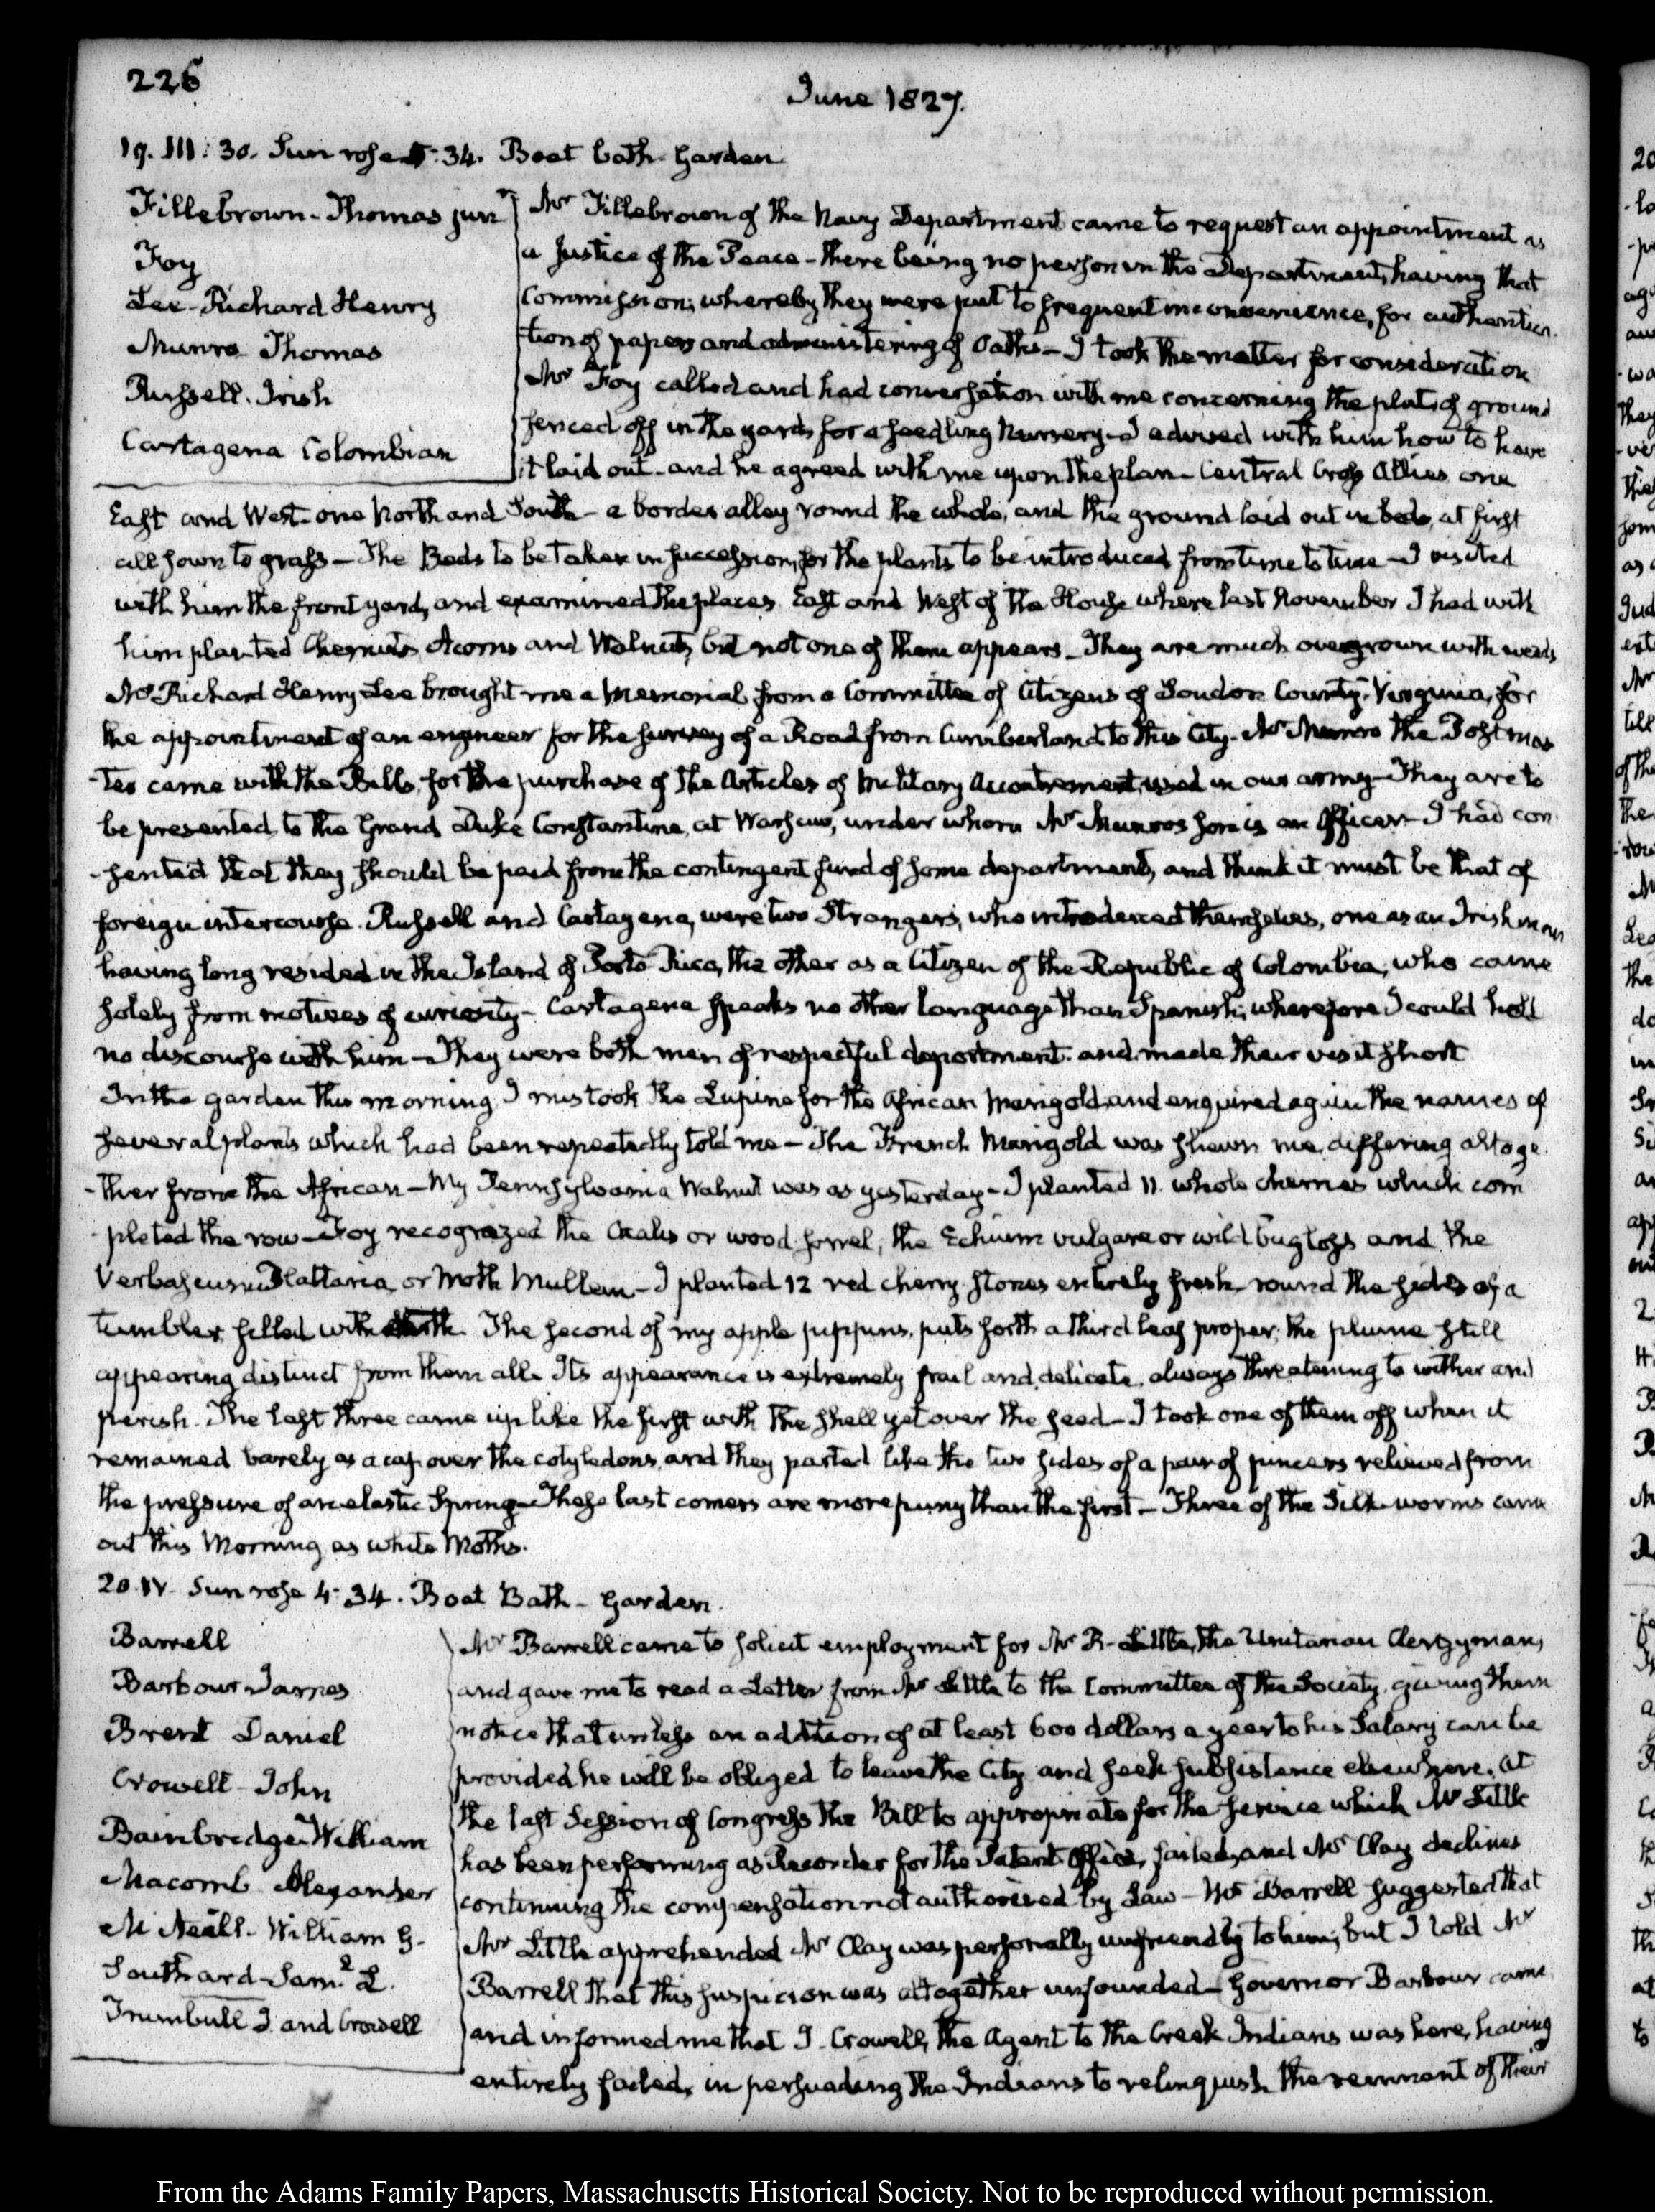 226
June 1827.
19. III: 30. Sun rose 4:34. Boat bath. Garden
Fillebrown. Thomas junr
Foy
Lee. Richard Henry
Munro Thomas
Russell. Irish
Cartagena Colombian
Mr Fillebrown of the Navy Department came to request an appointment as
a Justice of the Peace – there being no person in the Department, having that
Commission; whereby they were put to frequent inconvenience, for authentica-
tion of papers and administering of Oaths – I took the matter for consideration
Mr Foy called and had conversation with me concerning the plat of ground
fenced off in the yard, for a seedling Nursery – I advised with him how to have
it laid out – and he agreed with me upon the plan – Central Cross Allies one
East and West – one North and South – a border alley round the whole, and the ground laid out in beds, at first
all sown to grass – The Beds to be taken in succession, for the plants to be introduced from time to time – I visited
with him the front yard, and examined the places East and West of the House where last November I had with
him planted Chesnuts Acorns and Walnuts, but not one of them appears – They are much overgrown with weeds
Mr Richard Henry Lee brought me a Memorial from a Committee of Citizens of Loudon County, Virginia, for
the appointment of an engineer for the survey of a Road from Cumberland to this City. Mr Munro the Postmas
-ter came with the Bills, for the purchase of the Articles of Military Accoutrement, used in our army – They are to
be presented to the Grand Duke Constantine, at Warsaw, under whom Mr Munroe's son is an Officer – I had con
-sented that they should be paid from the contingent fund of some department, and think it must be that of
foreign intercourse. Russell and Cartagena, were two Strangers, who introduced themselves, one as an Irishman
having long resided in the Island of Porto Rico, the other as a Citizen of the Republic of Colombia, who came
solely from motives of curiosity – Cartagena speaks no other language than Spanish; wherefore I could hold
no discourse with him – They were both men of respectful deportment. and made their visit short
In the garden this morning I mistook the Lupine for the African Marigold, and enquired again the names of
several plants which had been repeatedly told me – The French Marigold was shewn me, differing altoge
-ther from the African – My Pennsylvania Walnut was as yesterday – I planted 11. whole cherries which com
-pleted the row – Foy recognized the Oxalis or wood-sorrel, the Echium vulgare or wild bugloss and the
Verbascum Blattaria, or Moth Mullein – I planted 12 red cherry-stones entirely fresh, round the sides of a
tumbler filled with earth. The second of my apple pippins, puts forth a third leaf proper; the plume still
appearing distinct from them all. Its appearance is extremely frail and delicate, always threatening to wither and
perish. The last three came up like the first with the shell yet over the seed – I took one of them off when it
remained barely as a cap over the cotyledons, and they parted like the two sides of a pair of pincers relieved from
the pressure of an elastic Spring – These last comers are more puny than the first – Three of the Silk-worms came
out this Morning as white Moths.
20. IV. Sun rose 4:34. Boat Bath – Garden.
Barrell
Barbour James
Brent Daniel
Crowell John
Bainbridge William
Macomb Alexander
McNeill – William G.
Southard – Saml L.
Trumbull J. and Crowell
Mr Barrell came to solicit employment for Mr R. Little, the Unitarian Clergyman,
and gave me to read a Letter from Mr Little to the Committee of the Society, giving them
notice that unless an addition of at least 600 dollars a year to his Salary can be
provided he will be obliged to leave the City and seek subsistence elsewhere. At
the last Session of Congress the Bill to appropriate for the service which Mr Little
has been performing as Recorder for the Patent Office, failed, and Mr Clay declines
continuing the compensation not authorised by Law – Mr Barrell suggested that
Mr Little apprehended Mr Clay was personally unfriendly to him; but I told Mr
Barrell that this suspicion was altogether unfounded – Governor Barbour came
and informed me that J. Crowell, the Agent to the Creek Indians was here, having
entirely failed, in persuading the Indians to relinquish the remnant of their
From the Adams Family Papers, Massachusetts Historical Society. Not to be reproduced without permission.